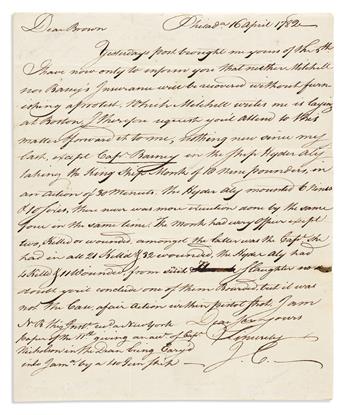 Dear Brown Philada. 16 April 1782
Yesterdays post brought me yours of the 5th
I have now only to inform you that neither Mitchell
nor Barry's Insurance will be recovered without furn
ishing a Protest. Which Mitchell writes me is
at Boston, I therefore request you'll attend to this
matter & forward it to me, nothing new since my
last, except Capt Barney in the Ship Hyder Aly
taking the King Ship Monk of 18 Nine pounders, in
an action of 30 Minutes. The Hyder Aly mounted 6 Nines
& 10 Sixes, there never was more execution done by the same
force in the same time. The Monk had every Officer except
two, Killed or wounded, amongst the latter was the Capt. She
had in all 21 Killed & 32 wounded. the Hyder Aly had
4 Killed & 11 Wounded, from which Slaughter no
doubt you'd conclude one of them Boarded, but it was
not the Case, a fair Action within pistol shot. I am
NB this Inst. New York Dear Sir Yours
Paper of the 11th giving an acct of Capt Sincerely
Nicholson in the Dean being Carry'd J. C.
into Jama. by a 40 Gun Ship